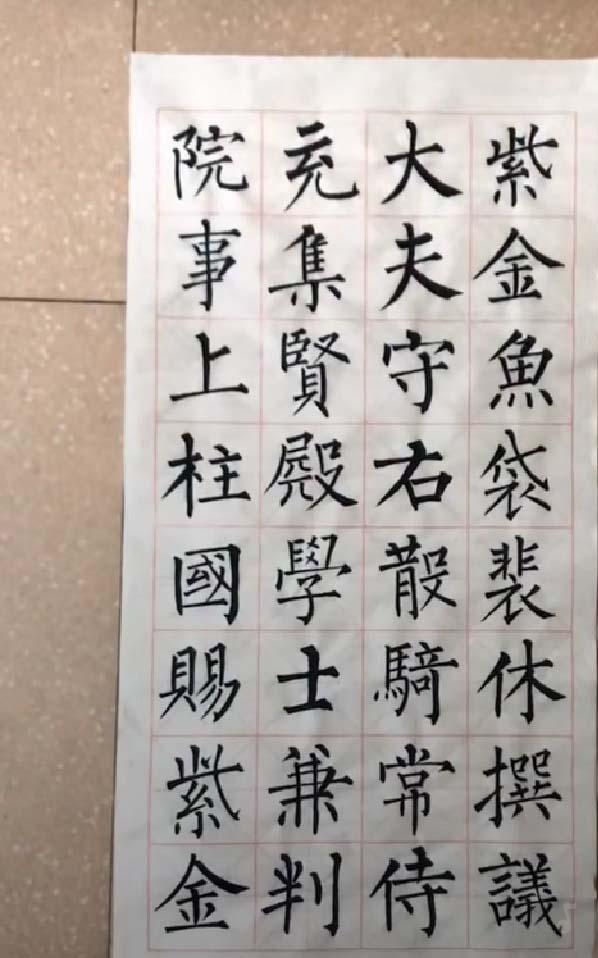 紫金魚袋裴休撰議
大夫守右散騎常侍
充集賢殿學士兼判
院事上柱國賜紫金